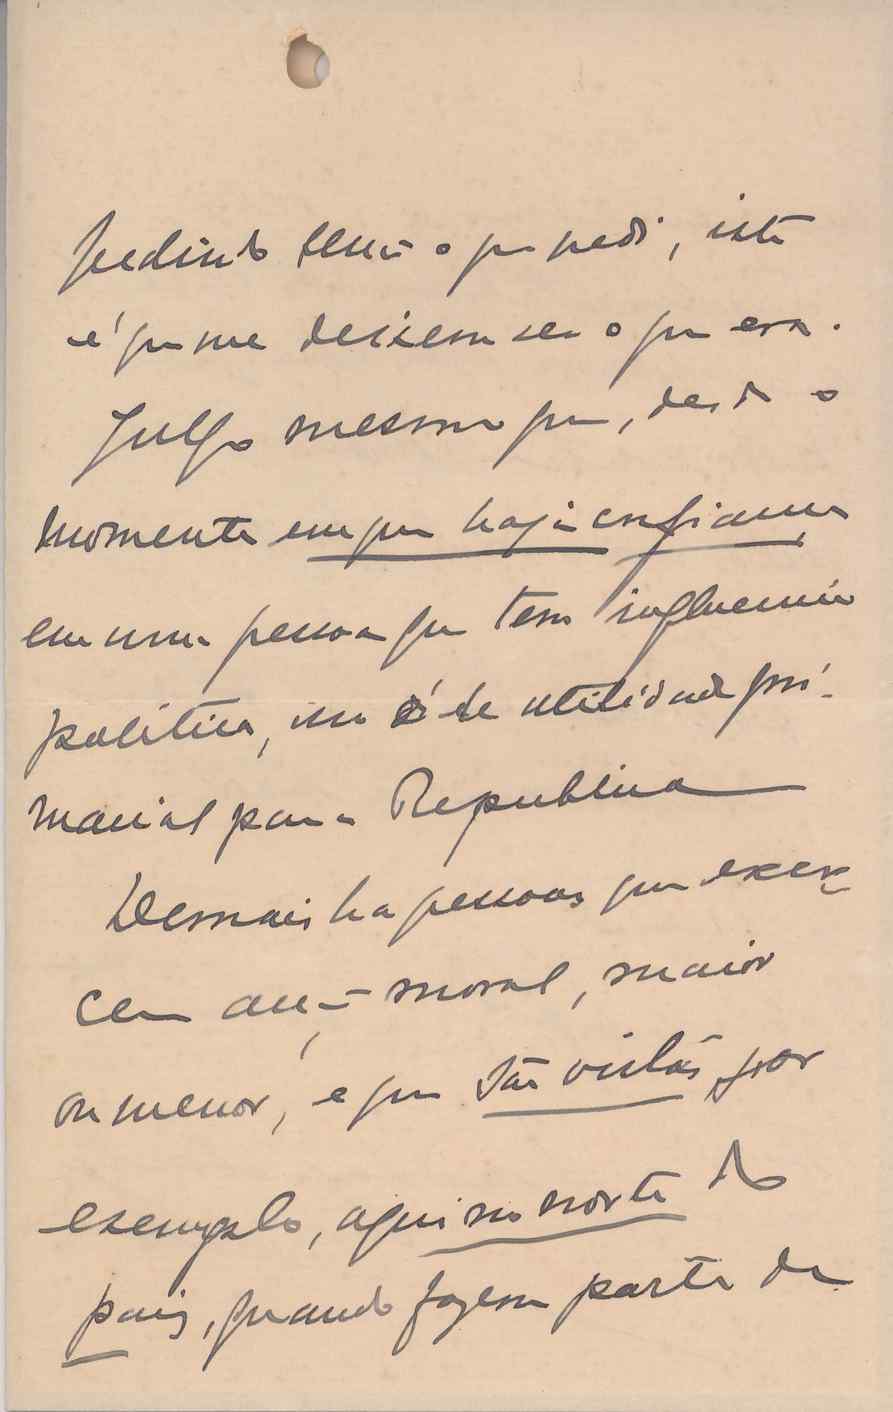 pedindo senão o que pedi, isto
é que me deixem ser o que era.
Julgo mesmo que, desde o
momento em que haja confiança
em uma pessoa que tem influencia
politica, isso é de utilidade pri-
macial para a Republica
Demais ha pessoas que exer-
cem acção moral, maior
ou menor, e que são vistas, por
exemplo, aqui no norte do
paiz, quando fazem parte de